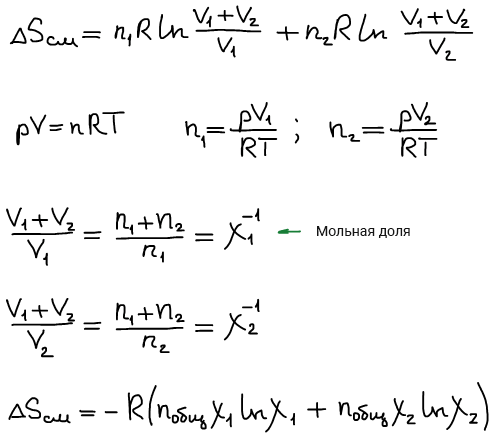 ΔSсм = n₁R ln (V₁+V₂)/V₁ + n₂R ln (V₁+V₂)/V₂
pV = nRT n₁ = pV₁/RT ; n₂ = pV₂/RT
(V₁+V₂)/V₁ = (n₁+n₂)/n₁ = X₁⁻¹ ← Мольная доля
(V₁+V₂)/V₂ = (n₁+n₂)/n₂ = X₂⁻¹
ΔSсм = - R(nобщ X₁ ln X₁ + nобщ X₂ ln X₂)